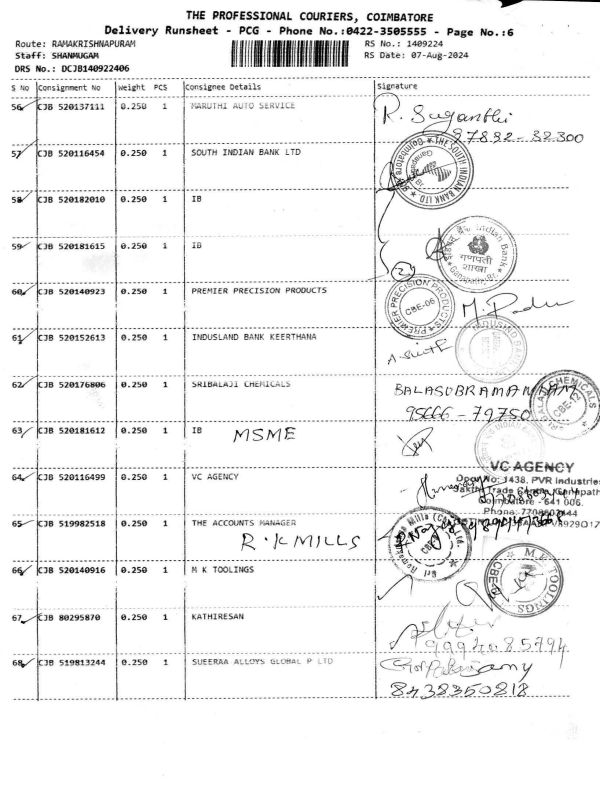 THE PROFESSIONAL COURIERS, COIMBATORE
Delivery Runsheet - PCG - Phone No.:0422-3505555 - Page No.:6
Route: RAMAKRISHNAPURAM RS No.: 1409224
Staff: SHANMUGAM RS Date: 07-Aug-2024
DRS No.: DCJB140922406
S No Consignment No Weight PCS Consignee Details Signature
56 CJB 520137111 0.250 1 MARUTHI AUTO SERVICE R. Suganthi
97892-32300
57 CJB 520116454 0.250 1 SOUTH INDIAN BANK LTD
THE SOUTH INDIAN BANK LTD
58 CJB 520182010 0.250 1 IB
59 CJB 520181615 0.250 1 IB
Indian Bank
गणपती
शाखा
2
60 CJB 520140923 0.250 1 PREMIER PRECISION PRODUCTS
PREMIER PRECISION PRODUCTS
CBE-06
61 CJB 520152613 0.250 1 INDUSLAND BANK KEERTHANA
62 CJB 520176806 0.250 1 SRIBALAJI CHEMICALS BALASUBRAMANIAM
95666-79750
CHEMICALS
63 CJB 520181612 0.250 1 IB MSME
64 CJB 520116499 0.250 1 VC AGENCY
VC AGENCY
1438, PVR Industries
Coimbatore - 641 006.
65 CJB 519982518 0.250 1 THE ACCOUNTS MANAGER
R.K MILLS
66 CJB 520140916 0.250 1 M K TOOLINGS
M.K. TOOLINGS
67 CJB 80295870 0.250 1 KATHIRESAN
68 CJB 519813244 0.250 1 SUEERAA ALLOYS GLOBAL P LTD
8438350818